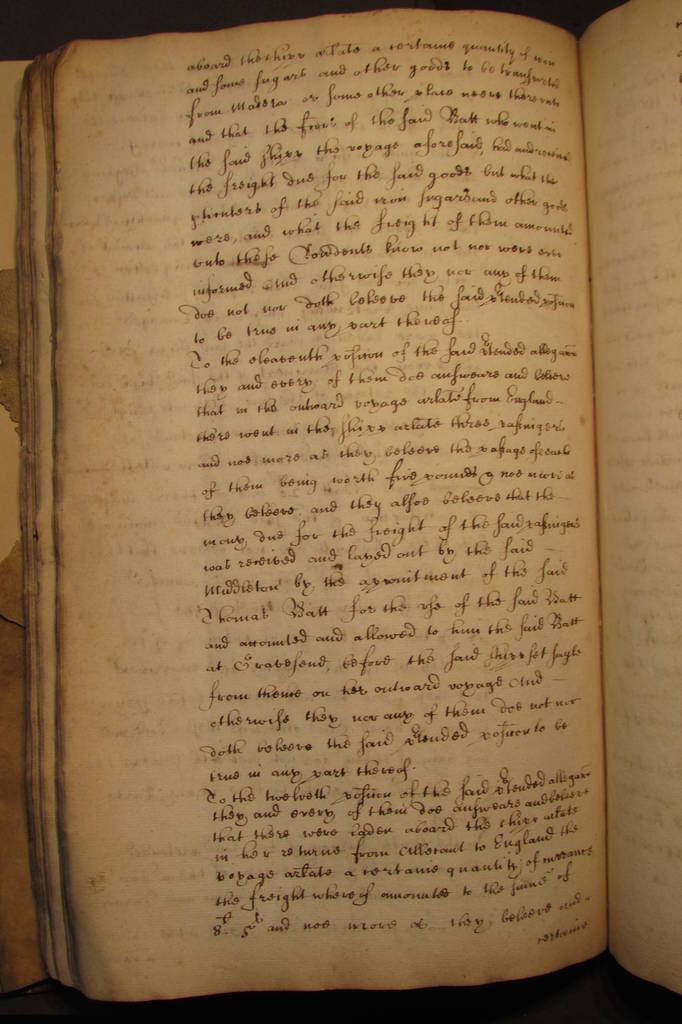 aboard the shipp arlate a certaine quantity of wine
and some sugars and other goods to be transported
from Madera or some other place neere thereunto
and that the ffactor of the said Batt who went in
the said shipp the voyage aforesaid, had and received
the freight due for the said goods but what the
pticulers of the said wines sugars and other goods
were, and what the freight of them amounted
unto these Rondents know not nor were ever
informed And otherwise they nor any of them
doe not nor doth beleeve the said ptended position
to be true in any part thereof.
To the eleaventh position of the said ptended allegacon
they and every of them doe answeare and beleeve
that in the outward voyage arlate from England
there went in the shipp arlate three passingers
and noe more as they beleeve the passage of each
of them being worth five pounds & noe more as
they beleeve. and they alsoe beleeve that the
mony due for the freight of the said passingers
was received and layed out by the said
Middleton by the appointment of the said
Thomas Batt for the use of the said Batt
and accounted and allowed to him the said Batt
at Gravesend, before the said shipp set sayle
from thence on her outward voyage And
otherwise they nor any of them doe not nor
doth beleeve the said ptended position to be
true in any part thereof.
To the twelveth position of the said ptended allegacon
they and every of them doe answeare and beleeve
that there were laden aboard the shipp arlate
in her returne from Allecant to England the
voyage arlate a certaine quantity of
the freight whereof amounted to the summe of
and noe more as they beleeve and
certaine